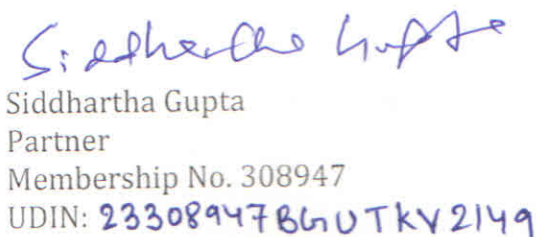 Siddhartha Gupta
Siddhartha Gupta
Partner
Membership No. 308947
UDIN: 23308947BGUTKV2149